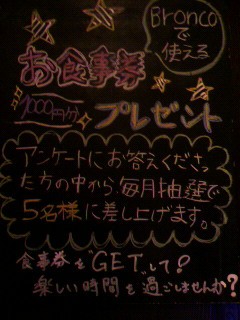 Bronco
で
使える
お食事券
1000円分
プレゼント
アンケートにお答えくださっ
た方の中から、毎月抽選で
5名様に差し上げます。
食事券を"GET"して!
楽しい時間を過ごしませんか?